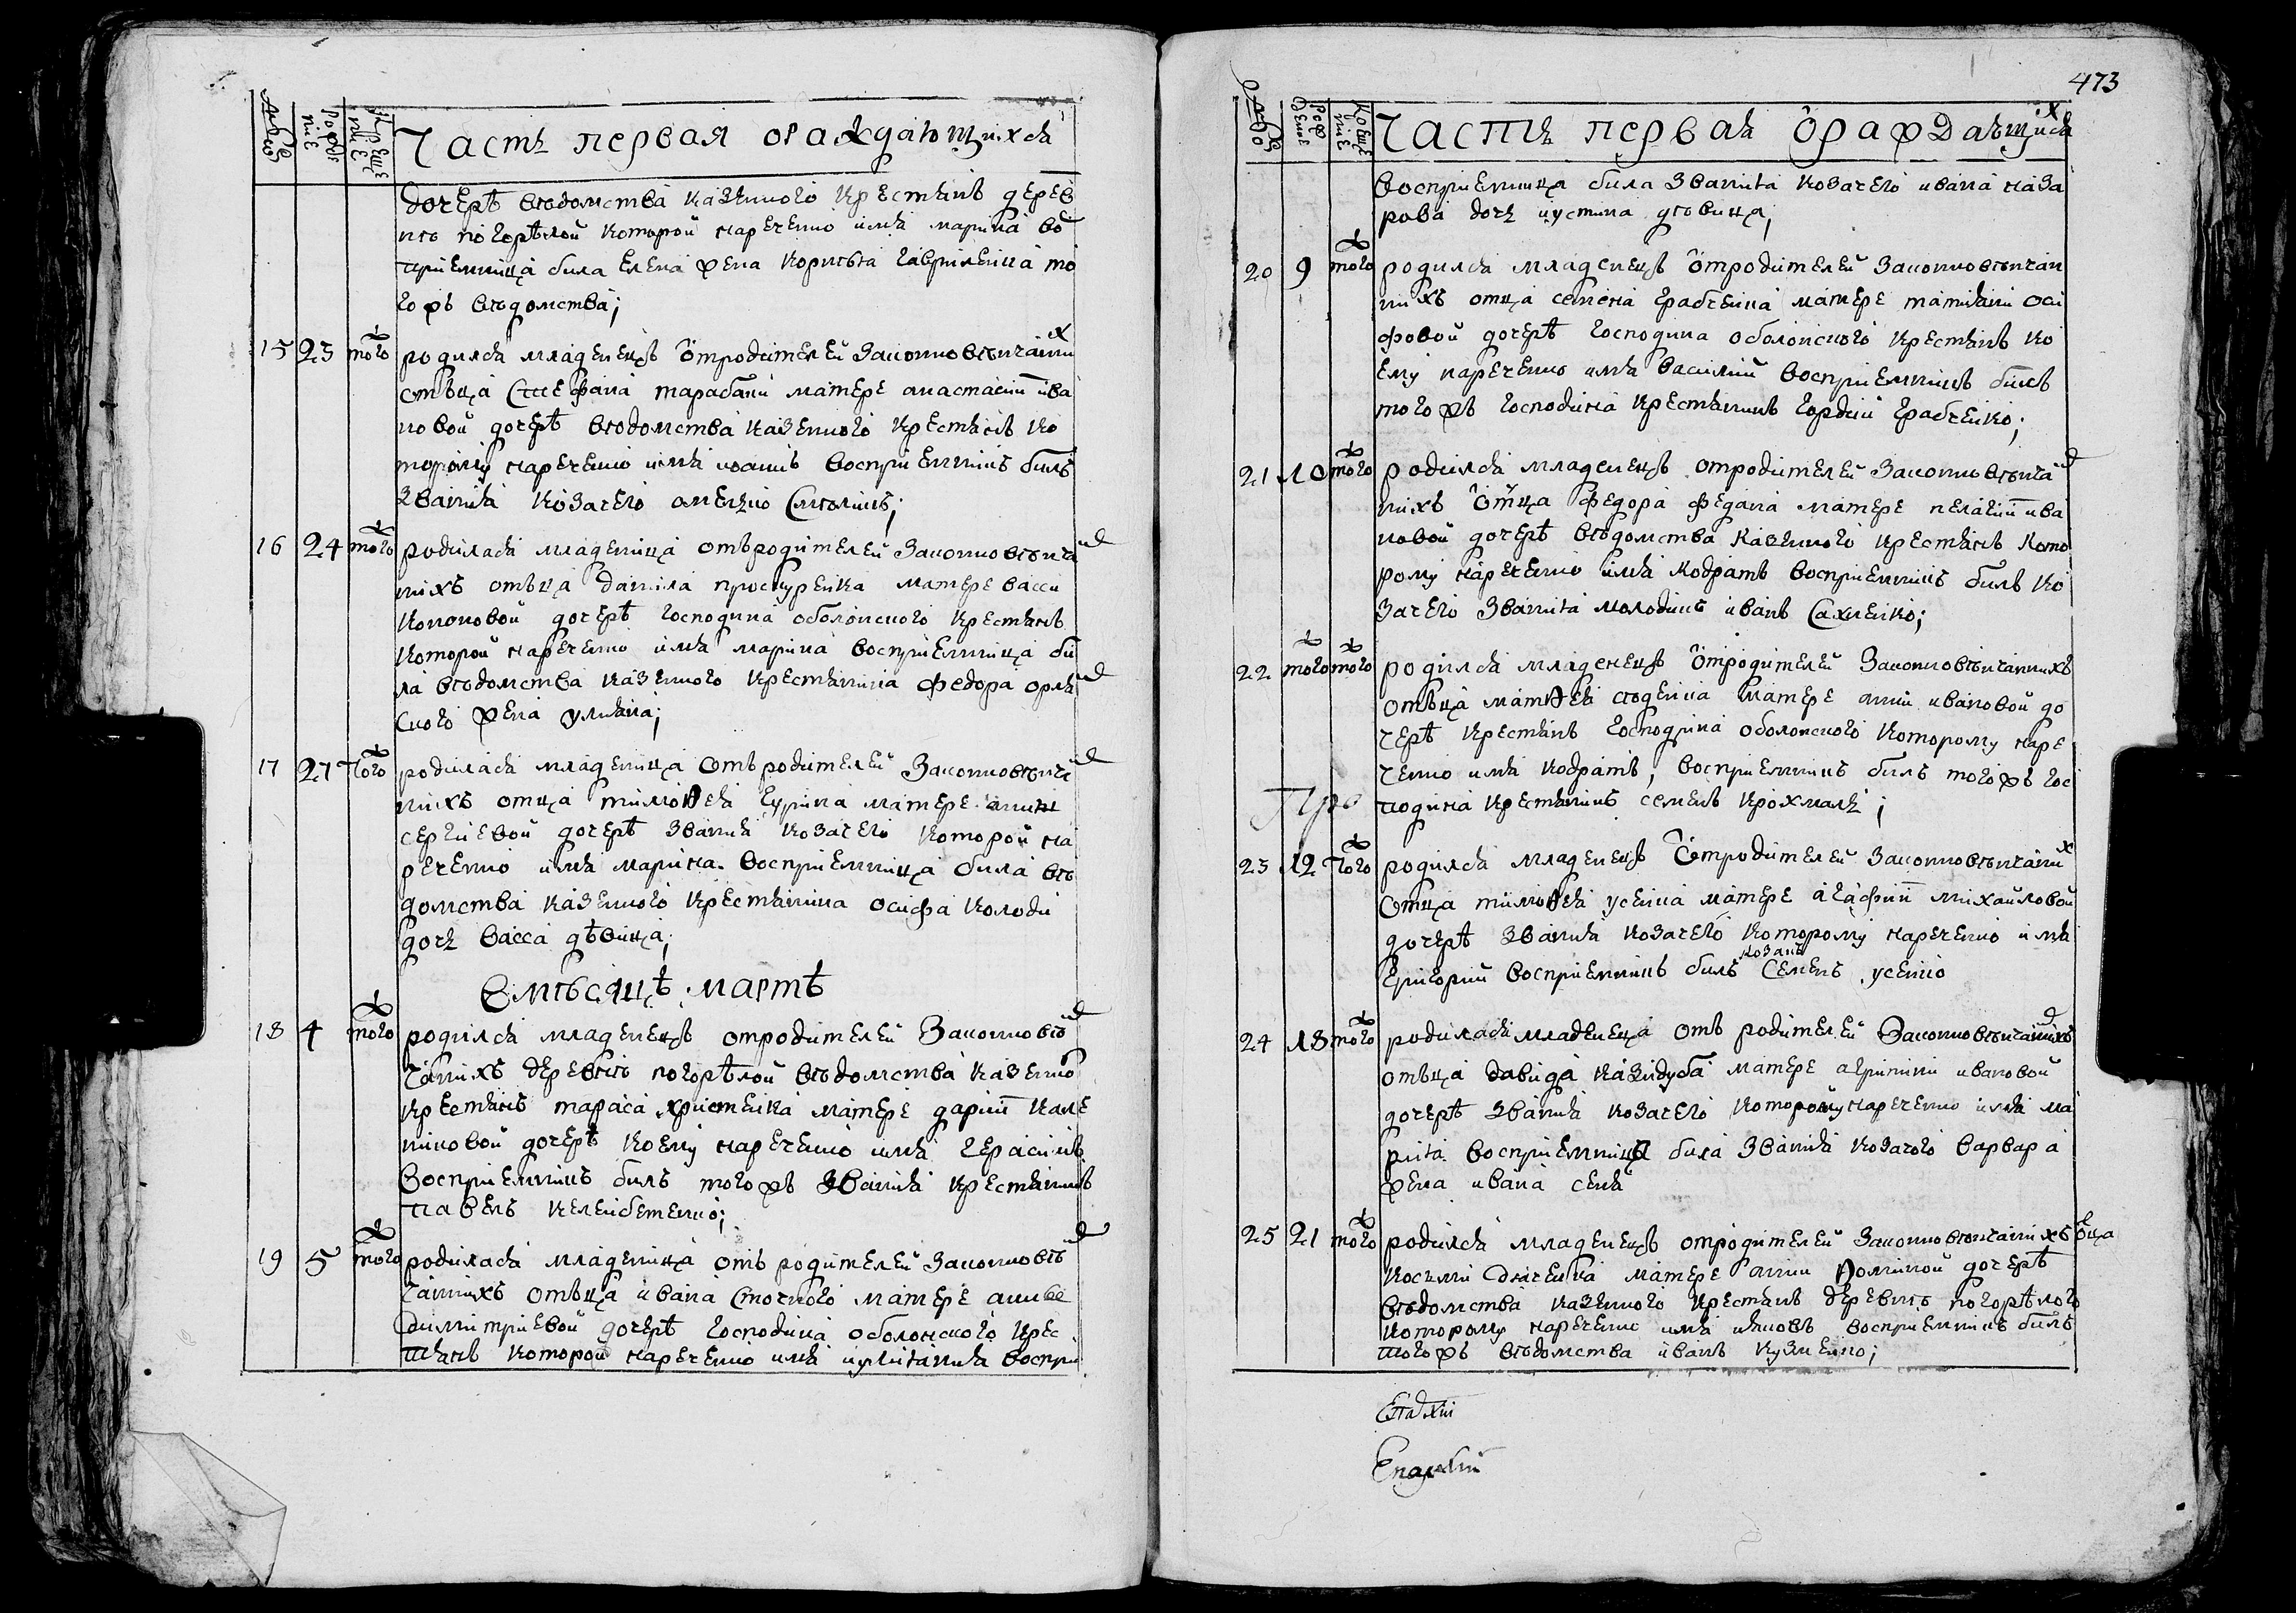 Часть первая ораждающихся
дочерѣ вѣдомства казенного крестянъ дерев
нѣ погорѣлой которой наречено имя марина во
приемница била Елена жена корнѣя гавриленка то
гожъ вѣдомства;
15 23 того родился младенецъ отродителей законновѣнчаних
отъца Стефана тарабани матере анастасии ива
новой дочерѣ вѣдомства казенного крестянъ ко
торому наречено имя иоанъ восприемникъ билъ
звания козачего
16 24 того родилася младеница отъродителей законновѣнча
нихъ отъца данила проскуренка матере васси
кононовой дочерѣ господина оболонского крестянъ
которой наречено имя марина восприемница би
ла вѣдомства казенного крестянина Федора орля
ского жена улияна;
17 27 того родилася младеница отъ родителей законновѣнча
нихъ отца тимоѳея матере анни
сергиевой дочерѣ звания козачего которой на
речено имя марина восприемница била вѣ
домства казенного крестянина осифа колоди
дочь васса дѣвица;
вмѣсяцѣ мартѣ
18 4 того родился младенецъ отродителей законновѣ
чанихъ деревнѣ погорѣлой вѣдомства казенно
крестянъ тараса христенка матере дарии кале
никовой дочерѣ коему наречено имя герасимъ
восприемникъ билъ тогожъ звания крестянинъ
павелъ
19 5 того родилася младеница отъ родителей законновѣ
чанихъ отъца ивана Стогного матере анни
димитриевой дочерѣ господина оболонского крес
тянъ которой наречено имя иулияния воспри
473
Часть первая оражДающихся
восприемница била звания козачего ивана наза
рова дочь иустина дѣвица;
20 9 того родился младенецъ отродителей законновѣнчан
нихъ отца семена грабченка матере татияни оси
фовой дочерѣ господина оболонского крестянъ ко
ему наречено имя василий восприемникъ билъ
тогожъ господина крестянинъ гордий грабченко;
21 10 того родился младенецъ отродителей законновѣнча
нихъ отца федора федана матере пелагии ива
новой дочерѣ вѣдомства казенного крестянъ кото
рому наречено имя кодратъ восприемникъ билъ ко
зачего звания молодикъ иванъ Сахненко;
22 того того родился младенецъ отродителей законновѣнчаннихъ
отъца матѳея сѣденка матере анни ивановой до
черѣ крестянъ господина оболонского которому наре
чено имя кодратъ, восприемникъ билъ тогожъ гос
подина крестянинъ семенъ крохмаль;
23 12 того родился младенецъ отродителей законновѣнчаних
отца тимоѳея усенка матере агафии михайловой
дочерѣ звания козачего которому наречено имя
григорий восприемникъ билъ козакъ Семенъ усенко
24 18 того родилася младеница отъ родителей законновѣнчанихъ
отъца давида казидуба матере агрипини ивановой
дочерѣ звания козачего которому наречено имя ма
рия восприемница била звания козачого варвара
жена ивана сеня
25 21 того родился младенецъ отродителей законновѣнчанихъ оца
косъми дяченка матере анни ѳоминой дочерѣ
вѣдомства казенного крестянъ деревнѣ погорѣлого
которому наречено имя ияковъ восприемникъ билъ
тогожъ вѣдомства иванъ кузменко;